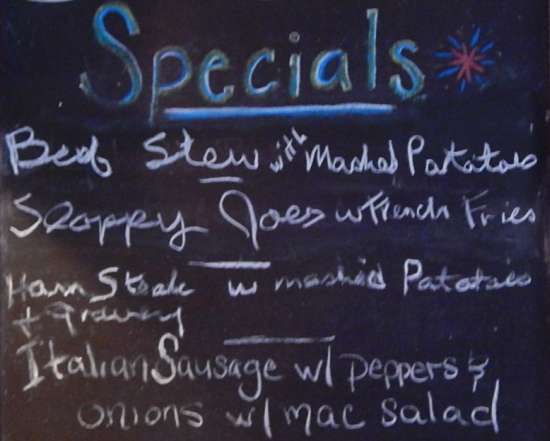 Specials
Beef Stew with Mashed Patatoes
Sloppy Joes w French Fries
Ham Steak w mashed Patatoes
+ Gravery
Italian Sausage w/ peppers &
onions w/ mac salad